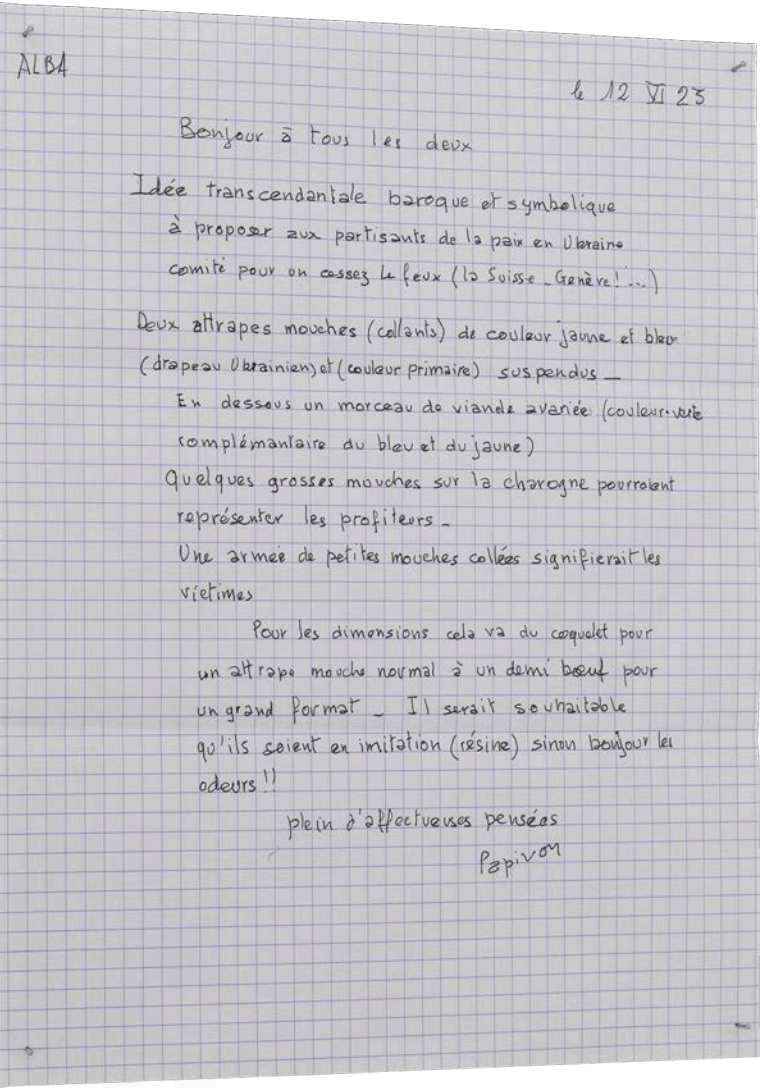 ALBA
le 12 VI 23
Bonjour à tous les deux
Idée transcendantale baroque et symbolique
à proposer aux partisants de la paix en Ukraine
comité pour on cessez le feux (la Suisse - Genève! ...)
Deux attrapes mouches (collants) de couleur jaune et bleu
(drapeau Ukrainien) et (couleur primaire) suspendus -
En dessous un morceau de viande avariée (couleur verte
complémantaire du bleu et du jaune)
Quelques grosses mouches sur la charogne pourraient
représenter les profiteurs -
Une armée de petites mouches collées signifierait les
victimes
Pour les dimensions cela va du coquelet pour
un attrape mouche normal à un demi bœuf pour
un grand format - Il serait souhaitable
qu'ils soient en imitation (résine) sinon bonjour les
odeurs !!
plein d'affectueuses pensées
Papivon